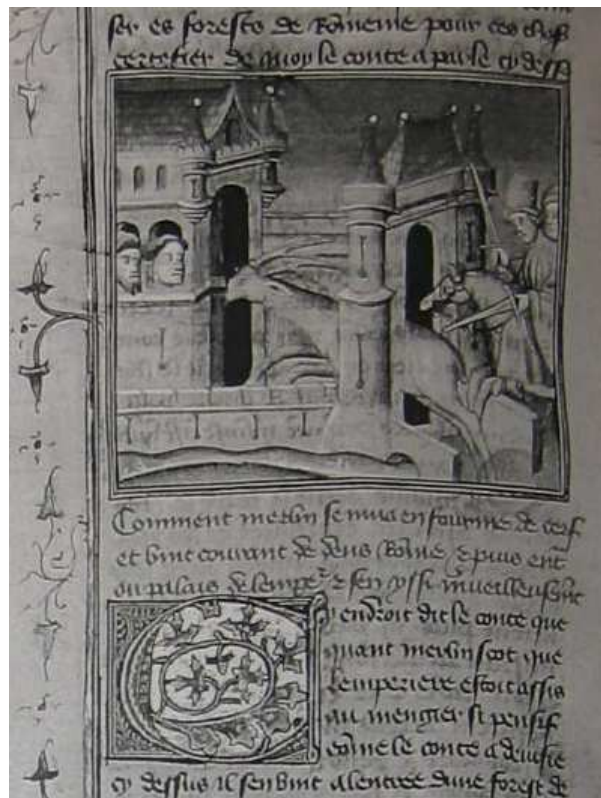 ser es forests de Romenie pour ces choses
certefier de quoy le conte a parle cy dess
Comment merlin se mua en fourme de cerf
et vint courant de dens Rome e puis entr
ou palais de lemper e sen yssi merveilleusement
Cy endroit dit le conte que
quant merlin scot que
lemperiere estoit assis
au mengier si pensif
come le conte a devise
cy dessus il sen vint a lentree dune forest de